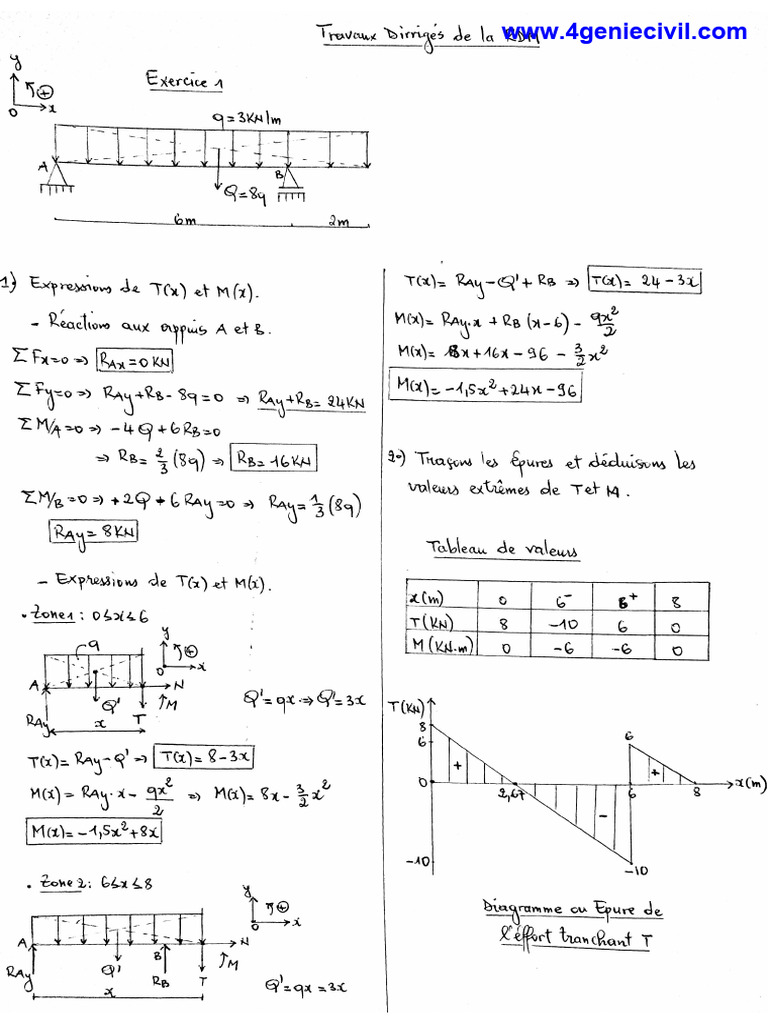 Travaux Dirrigés de la RDM
www.4geniecivil.com
Exercice 1
y
+
0
x
q=3KN/m
A
B
Q=8q
6m
2m
1) Expressions de T(x) et M(x).
- Réactions aux appuis A et B.
ΣFx=0 => RAx=0KN
ΣFy=0 => RAy+RB-8q=0 => RAy+RB=24KN
ΣM/A=0 => -4Q+6RB=0
=> RB=2/3(8q) => RB=16KN
ΣM/B=0 => +2Q+6RAy=0 => RAy=1/3(8q)
RAy=8KN
- Expressions de T(x) et M(x).
• Zone1 : 0≤x≤6
q
y
+
0
x
A
N
M
Q'
RAy
x
T
Q'=qx => Q'=3x
T(x)=RAy-Q' => T(x)=8-3x
M(x)=RAy.x-qx²/2 => M(x)=8x-3/2x²
M(x)=-1,5x²+8x
• Zone2: 6≤x≤8
y
+
0
x
A
N
B
M
RAy
Q'
RB
T
x
Q'=qx=3x
T(x)=RAy-Q'+RB => T(x)=24-3x
M(x)=RAy.x+RB(x-6)-qx²/2
M(x)=8x+16x-96-3/2x²
M(x)=-1,5x²+24x-96
2°) Traçons les Épures et déduisons les
valeurs extrêmes de T et M.
Tableau de valeurs
x(m) 0 6⁻ 6⁺ 8
T(KN) 8 -10 6 0
M(KN.m) 0 -6 -6 0
T(KN)
8
6
6
+
+
0
2,67
6
8
x(m)
-
-10
-10
Diagramme ou Epure de
l'éffort tranchant T